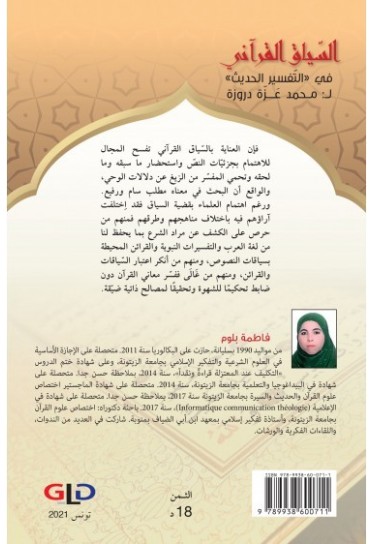 السّياق القرآني
في «التّفسير الحديث»
لـ: محمد عَـزّة دروزة
فإن العناية بالسّياق القرآني تفسـح المجال
للاهتمام بجزئيّات النصّ واستحضار ما سبقه وما
لحقه وتحمي المفسّر من الزيغ عن دلالات الوحي،
والواقع أن البحث في معناه مطلب سام ورفيع.
ورغم اهتمام العلماء بقضية السياق فقد إختلفت
آراؤهم فيه باختلاف مناهجهم وطرقهم فمنهم من
حرص على الكشف عن مراد الشرع بما يحفظ لنا
من لغة العرب والتفسيرات النبوية والقرائن المحيطة
بسياقات النصوص، ومنهم من أنكر اعتبار السّياقات
والقرائن، ومنهم من غَالَى ففسّر معاني القرآن دون
ضابط تحكيمًا للشهوة وتحقيقًا لمصالح ذاتية ضيّقة.
فاطمة بلوم
من مواليد 1990 بسليانة، حازت على البكالوريا سنة 2011. متحصلة على الإجازة الأساسية
في العلوم الشرعية والتفكير الإسلامي بجامعة الزيتونة، وعلى شهادة ختم الدروس
«التكليف عند المعتزلة قراءةً ونقداً»، سنة 2014، بملاحظة حسن جدا. متحصلة على
شهادة في البيداغوجيا والتعلمية بجامعة الزيتونة، سنة 2014. وشهادة الماجستير اختصاص
علوم القرآن والحديث والسيرة بجامعة الزيتونة سنة 2017، بملاحظة حسن جدا. متحصلة على شهادة في
الإعلامية (Informatique communication théologie)، سنة 2017. باحثة دكتوراه: اختصاص علوم القرآن
بجامعة الزيتونة، وأستاذة تفكير إسلامي بمعهد ابن أبي الضياف بمنوبة، شاركت في العديد من الندوات،
واللقاءات الفكرية والورشات.
ISBN: 978-9938-60-071-1
9 789938 600711
الثمـن
18 د
GLD
تونس 2021